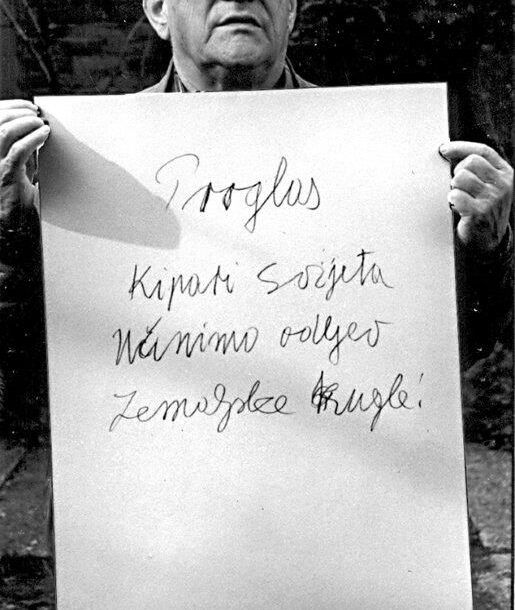 Proglas
Kipari svijeta
učinimo odljev
zemaljske kugle!